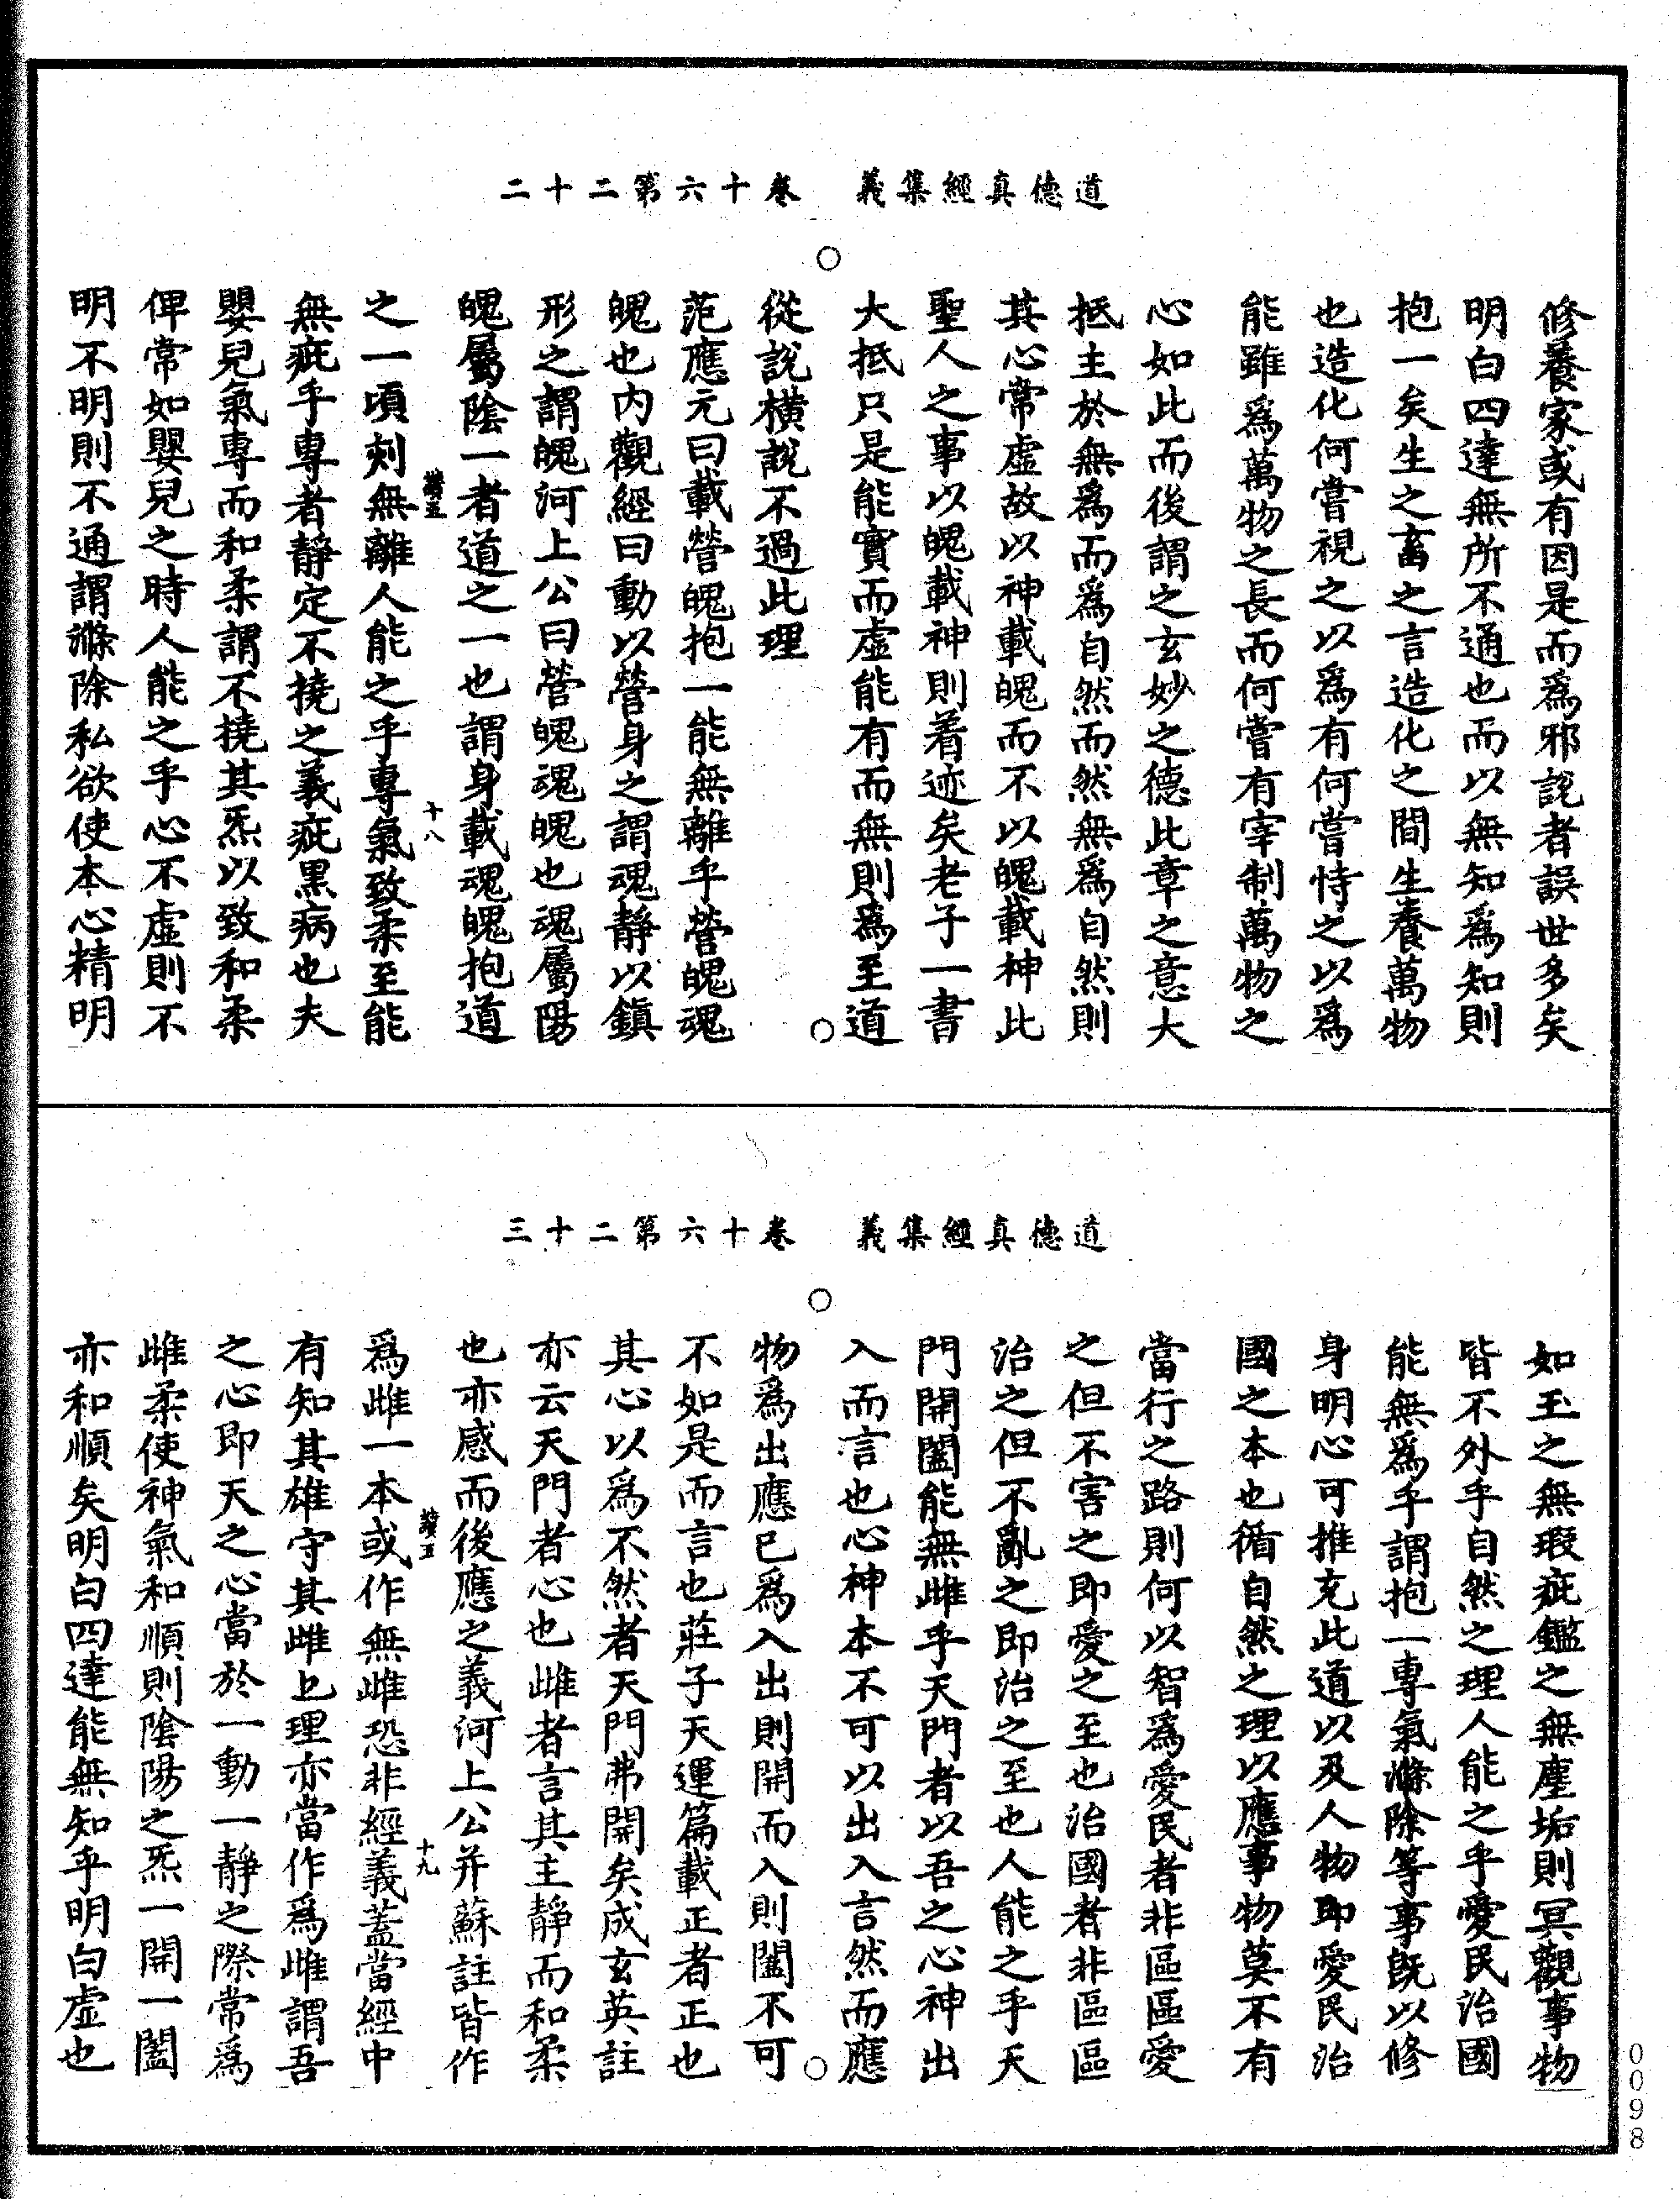 道德真經集義　卷十六第二十二
修養家或有因是而爲邪說者誤世多矣
明白四達無所不通也而以無知爲知則
抱一矣生之畜之言造化之間生養萬物
也造化何嘗視之以爲有何嘗恃之以爲
能雖爲萬物之長而何嘗有宰制萬物之
心如此而後謂之玄妙之德此章之意大
抵主於無爲而爲自然而然無爲自然則
其心常虛故以神載魄而不以魄載神此
聖人之事以魄載神則着迹矣老子一書
大抵只是能實而虛能有而無則爲至道
從說橫說不過此理
范應元曰載營魄抱一能無離乎營魄魂
魄也内觀經曰動以營身之謂魂靜以鎮
形之謂魄河上公曰營魄魂魄也魂屬陽
魄屬陰一者道之一也謂身載魂魄抱道
之一頃刻無離人能之乎專氣致柔至能
無疵乎專者靜定不撓之義疵黑病也夫
嬰兒氣專而和柔謂不撓其炁以致和柔
俾常如嬰兒之時人能之乎心不虛則不
明不明則不通謂滌除私欲使本心精明
十八
道德真經集義　卷十六第二十三
如玉之無瑕疵鑑之無塵垢則冥觀事物
皆不外乎自然之理人能之乎愛民治國
能無爲乎謂抱一專氣滌除等事既以修
身明心可推充此道以及人物即愛民治
國之本也循自然之理以應事物莫不有
當行之路則何以智爲愛民者非區區愛
之但不害之即愛之至也治國者非區區
治之但不亂之即治之至也人能之乎天
門開闔能無雌乎天門者以吾之心神出
入而言也心神本不可以出入言然而應
物爲出應已爲入出則開而入則闔不可
不如是而言也莊子天運篇載正者正也
其心以爲不然者天門弗開矣成玄英註
亦云天門者心也雌者言其主靜而和柔
也亦感而後應之義河上公并蘇註皆作
爲雌一本或作無雌恐非經義蓋當經中
有知其雄守其雌也理亦當作爲雌謂吾
之心即天之心當於一動一靜之際常爲
雌柔使神氣和順則陰陽之炁一開一闔
亦和順矣明白四達能無知乎明白虛也
十九
0098